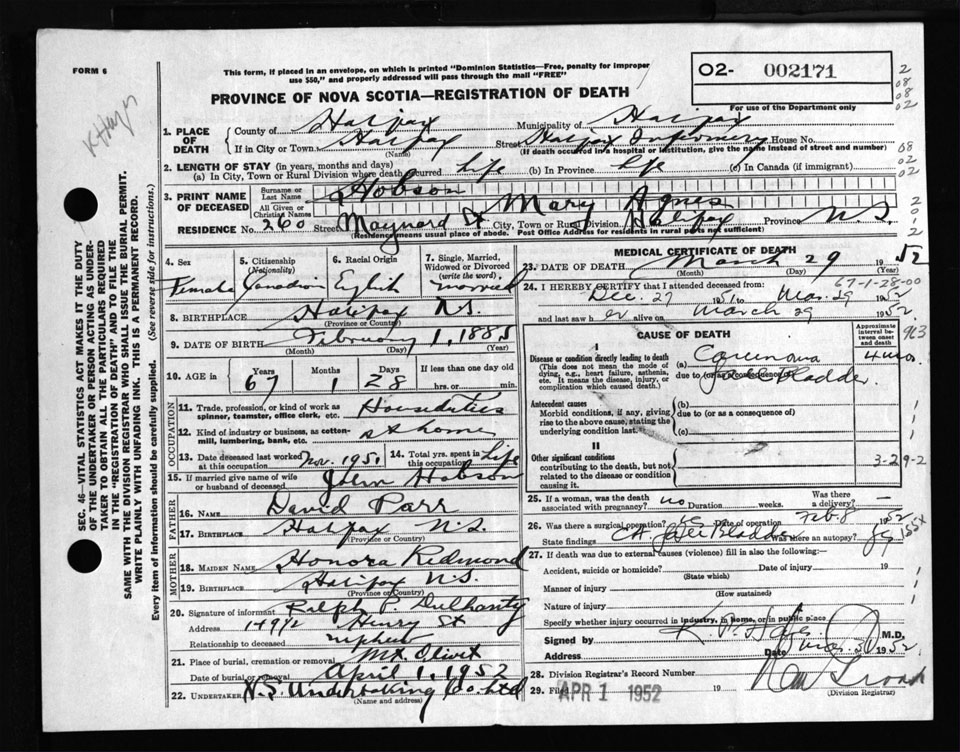 FORM 6
This form, if placed in an envelope, on which is printed "Dominion Statistics—Free, penalty for improper
use $50," and properly addressed will pass through the mail "FREE"
PROVINCE OF NOVA SCOTIA—REGISTRATION OF DEATH
02- 002171
For use of the Department only
2
08
08
02
K Hayes
1. PLACE OF DEATH
County of Halifax Municipality of Halifax
If in City or Town Halifax Street Halifax Infirmary House No.
(Name) (If death occurred in a hospital or institution, give the name instead of street and number)
08
02
02
2. LENGTH OF STAY (in years, months and days)
(a) In City, Town or Rural Division where death occurred Life (b) In Province life (c) in Canada (if immigrant)
3. PRINT NAME OF DECEASED
Surname or Last Name Hobson
All Given or Christian Names Mary Agnes
RESIDENCE No. 260 Street Maynard St City, Town or Rural Division Halifax Province N.S.
(Residence means usual place of abode. Post Office Address for residents in rural parts not sufficient)
2
0
1
2
4. Sex Female
5. Citizenship (Nationality) Canadian
6. Racial Origin English
7. Single, Married, Widowed or Divorced (write the word) married
8. BIRTHPLACE Halifax N.S.
(Province or Country)
9. DATE OF BIRTH February 1, 1885
(Month) (Day) (Year)
10. AGE in Years 67 Months 1 Days 28 If less than one day
hrs. or min.
OCCUPATION
11. Trade, profession, or kind of work as spinner, teamster, office clerk, etc. Houseduties
12. Kind of industry or business, as cotton-mill, lumbering, bank, etc. at home
13. Date deceased last worked at this occupation Nov. 1951 14. Total yrs. spent in this occupation Life
15. If married give name of wife or husband of deceased John Hobson
FATHER
16. Name David Parr
17. Birthplace Halifax N.S.
(Province or Country)
MOTHER
18. MAIDEN NAME Honora Redmond
19. BIRTHPLACE Halifax N.S.
(Province or Country)
20. Signature of informant Ralph P. Dulhanty
Address 149½ Henry St
Relationship to deceased nephew
21. Place of burial, cremation or removal Mt. Olivet
Date of burial or removal April 1, 1952
22. UNDERTAKER N.S. Undertaking Co. Ltd
(Name and address)
MEDICAL CERTIFICATE OF DEATH
23. DATE OF DEATH March 29 1952
(Month) (Day) (Year)
67-1-28-00
24. I HEREBY CERTIFY that I attended deceased from:
Dec. 27 1951 to Mar. 29 1952
and last saw her alive on March 29 1952.
CAUSE OF DEATH
Approximate interval between onset and death
I
Disease or condition directly leading to death
(This does not mean the mode of dying, e.g., heart failure, asthenia, etc. It means the disease, injury, or complication which caused death.)
(a) Carcinoma 4 mos.
due to (or as a consequence of) Gall Bladder.
Antecedent causes
Morbid conditions, if any, giving rise to the above cause, stating the underlying condition last.
(b)
due to (or as a consequence of)
(c)
II
Other significant conditions
contributing to the death, but not related to the disease or condition causing it.
3-29-2
25. If a woman, was the death associated with pregnancy? no Duration weeks. Was there a delivery? —
26. Was there a surgical operation? Date of operation Feb. 8 1952
State findings CA Gall Bladder Was there an autopsy?
27. If death was due to external causes (violence) fill in also the following:—
Accident, suicide or homicide? Date of injury 19
(State which)
Manner of injury
(How sustained)
Nature of injury
Specify whether injury occurred in industry, in home, or in public place
Signed by M.D.
Address Date Mar. 1952.
28. Division Registrar's Record Number
29. Filed APR 1 1952
(Division Registrar)
SEC. 46—VITAL STATISTICS ACT MAKES IT THE DUTY
OF THE UNDERTAKER OR PERSON ACTING AS UNDER-
TAKER TO OBTAIN ALL THE PARTICULARS REQUIRED
IN THE "REGISTRATION OF DEATH" AND TO FILE THE
SAME WITH THE DIVISION REGISTRAR WHO SHALL ISSUE THE BURIAL PERMIT.
WRITE PLAINLY WITH UNFADING INK. THIS IS A PERMANENT RECORD.
Every item of information should be carefully supplied. (See reverse side for instructions.)